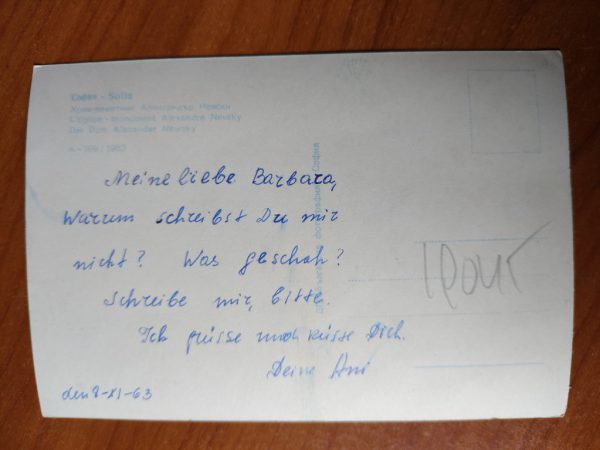 София - Sofia
Храм-паметник Александър Невски
L'Eglise-monument Alexandre Nevsky
Der Dom Alexander Newsky
A - 199 / 1962
Meine liebe Barbara,
Warum schreibst Du mir
nicht? Was geschah?
Schreibe mir, bitte.
Ich grüsse und küsse Dich.
Deine Ani
den 8-XI-63
фотография София